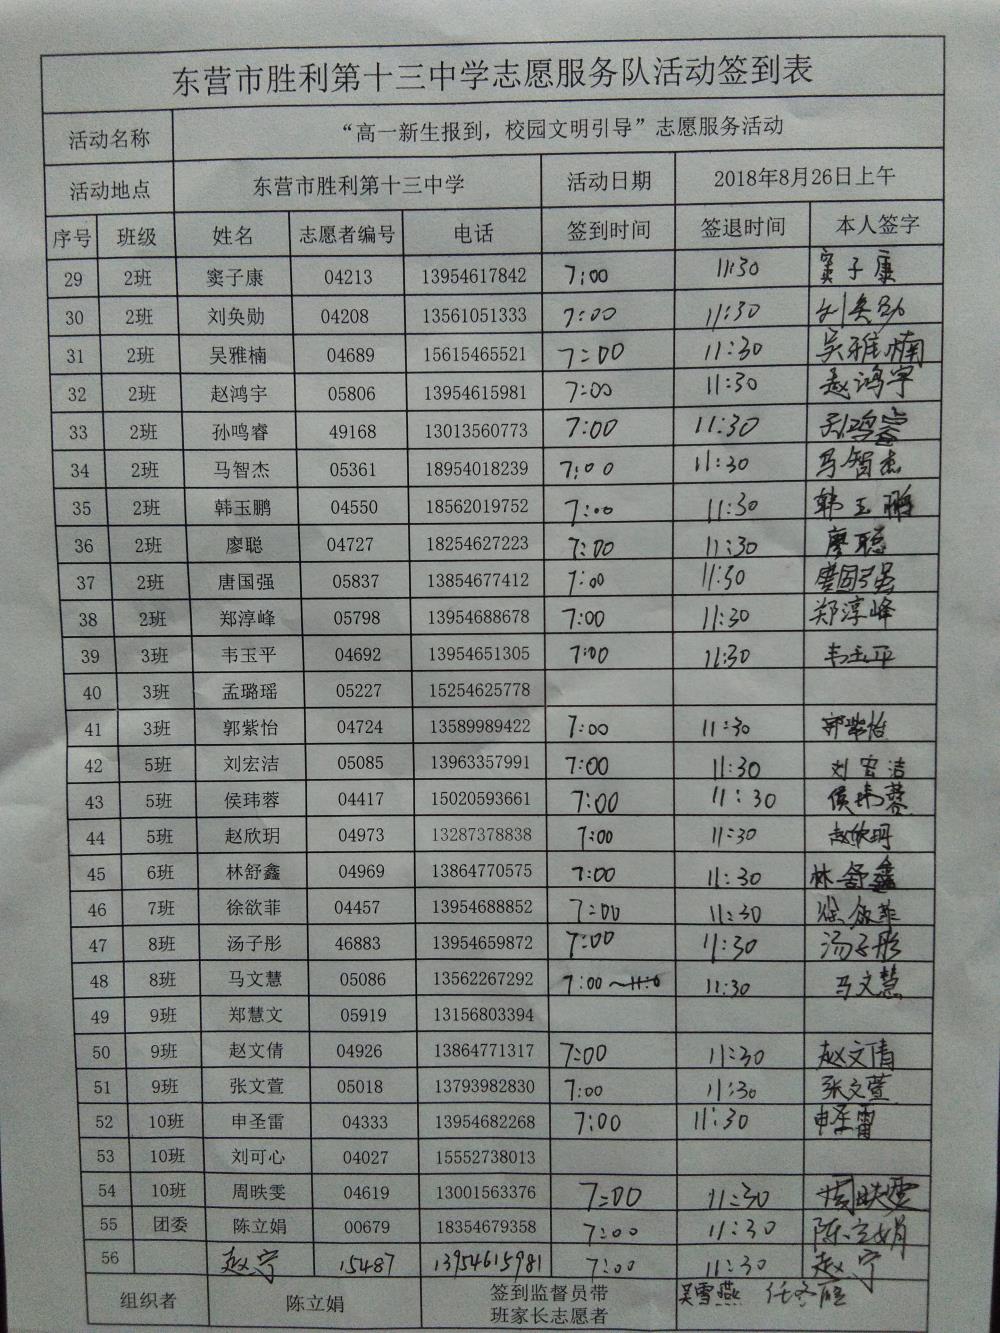 东营市胜利第十三中学志愿服务队活动签到表
活动名称 “高一新生报到，校园文明引导”志愿服务活动
活动地点 东营市胜利第十三中学 活动日期 2018年8月26日上午
序号 班级 姓名 志愿者编号 电话 签到时间 签退时间 本人签字
29 2班 窦子康 04213 13954617842 7:00 11:30 窦子康
30 2班 刘奂勋 04208 13561051333 7:00 11:30 刘奂勋
31 2班 吴雅楠 04689 15615465521 7:00 11:30 吴雅楠
32 2班 赵鸿宇 05806 13954615981 7:00 11:30 赵鸿宇
33 2班 孙鸣睿 49168 13013560773 7:00 11:30 孙鸣睿
34 2班 马智杰 05361 18954018239 7:00 11:30 马智杰
35 2班 韩玉鹏 04550 18562019752 7:00 11:30 韩玉鹏
36 2班 廖聪 04727 18254627223 7:00 11:30 廖聪
37 2班 唐国强 05837 13854677412 7:00 11:30 唐国强
38 2班 郑淳峰 05798 13954688678 7:00 11:30 郑淳峰
39 3班 韦玉平 04692 13954651305 7:00 11:30 韦玉平
40 3班 孟璐瑶 05227 15254625778
41 3班 郭紫怡 04724 13589989422 7:00 11:30 郭紫怡
42 5班 刘宏洁 05085 13963357991 7:00 11:30 刘宏洁
43 5班 侯玮蓉 04417 15020593661 7:00 11:30 侯玮蓉
44 5班 赵欣玥 04973 13287378838 7:00 11:30 赵欣玥
45 6班 林舒鑫 04969 13864770575 7:00 11:30 林舒鑫
46 7班 徐欲菲 04457 13954688852 7:00 11:30 徐欲菲
47 8班 汤子彤 46883 13954659872 7:00 11:30 汤子彤
48 8班 马文慧 05086 13562267292 7:00 11:30 马文慧
49 9班 郑慧文 05919 13156803394
50 9班 赵文倩 04926 13864771317 7:00 11:30 赵文倩
51 9班 张文萱 05018 13793982830 7:00 11:30 张文萱
52 10班 申圣雷 04333 13954682268 7:00 11:30 申圣雷
53 10班 刘可心 04027 15552738013
54 10班 周昳雯 04619 13001563376 7:00 11:30 周昳雯
55 团委 陈立娟 00679 18354679358 7:00 11:30 陈立娟
56 赵宁 15487 13954615981 7:00 11:30 赵宁
组织者 陈立娟 签到监督员带 吴雪燕
班家长志愿者